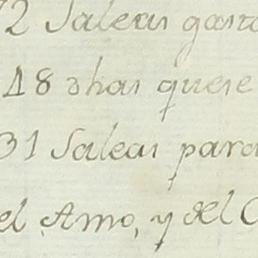 72 Saleas gasta
48 dhas quese
31 Saleas para
el Amo, y del C